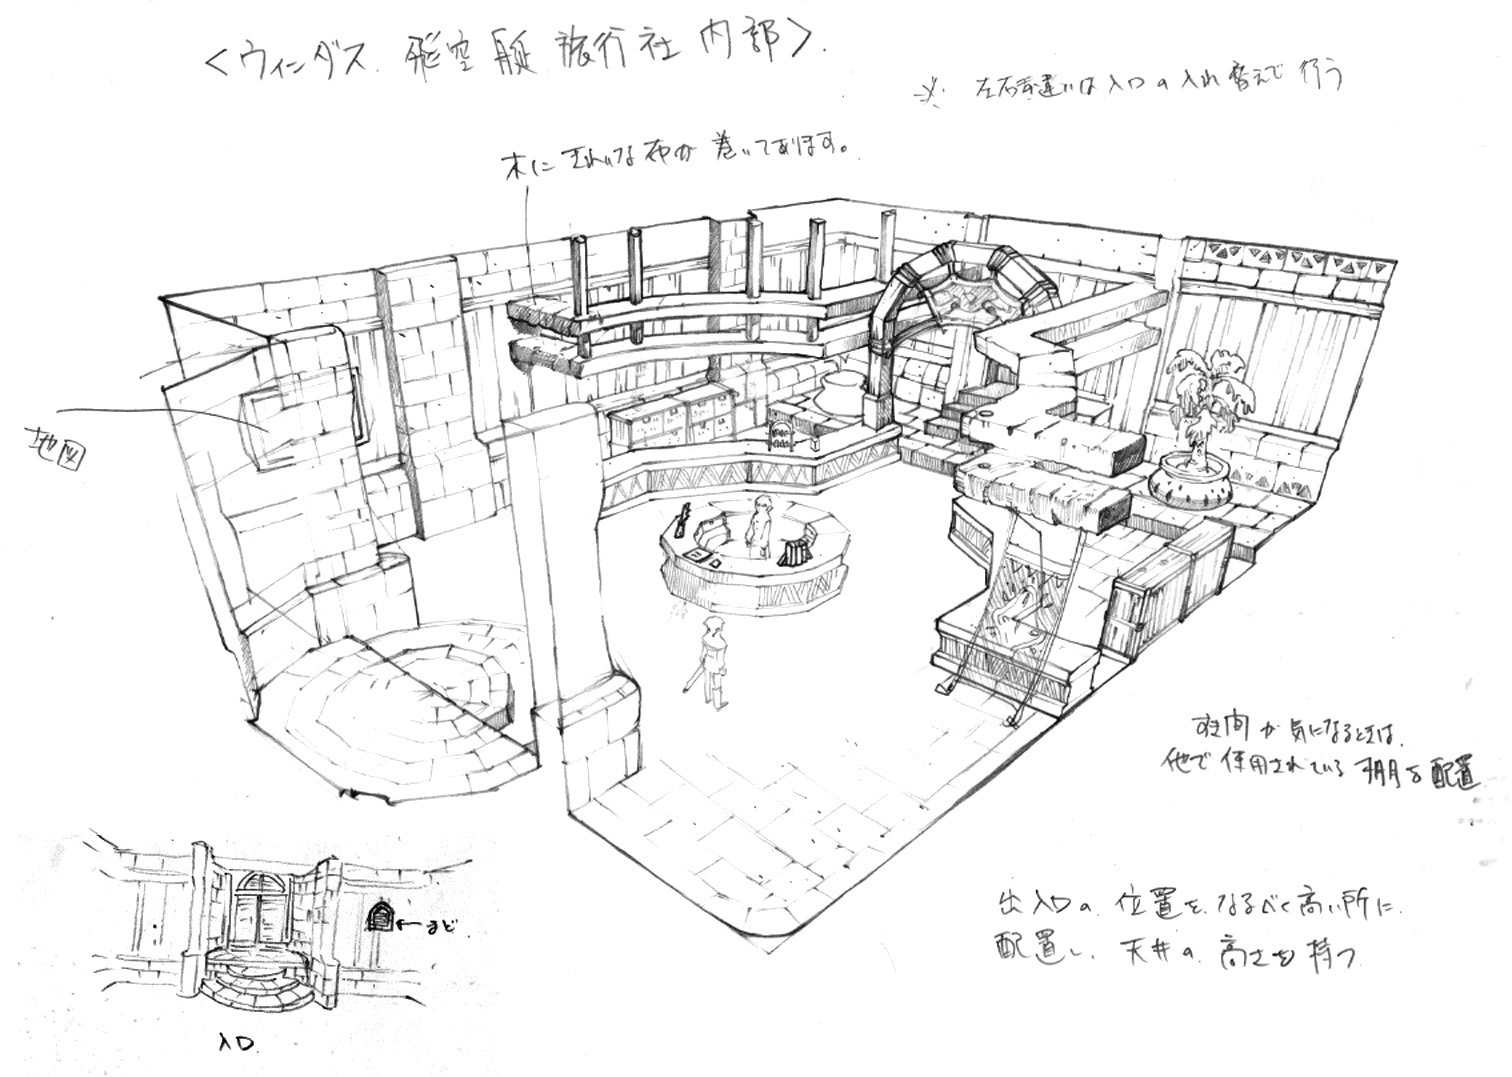 <ウィンダス 飛空艇 旅行社 内部>
※ 左右の違いは入口の入れ替えで行う
木にきれいな布が巻いてあります。
地図
すき間が気になるときは、
他で使用されている棚を配置
出入口の位置を、なるべく高い所に
配置し、天井の高さを持つ
←まど
入口